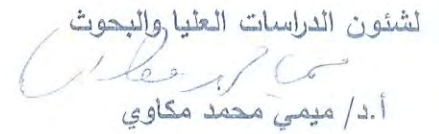 لشئون الدراسات العليا والبحوث
أ.د/ ميمي محمد مكاوي